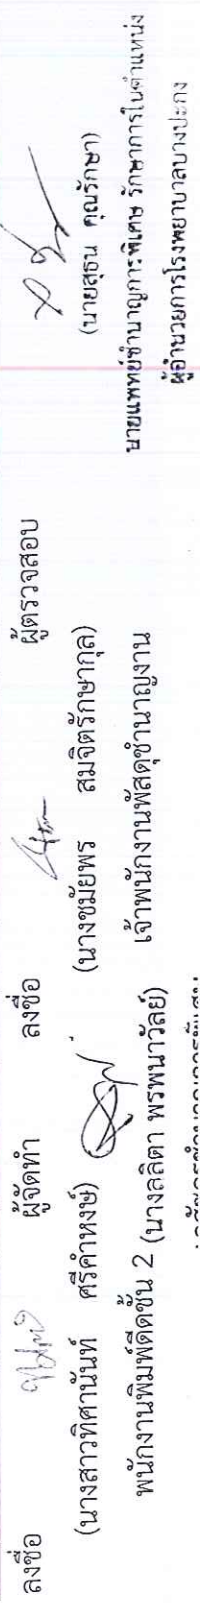 ลงชื่อ ผู้จัดทำ
(นางสาวทิศานันท์ ศรีคำหงษ์)
พนักงานพิมพ์ดีดชั้น 2
(นางลลิตา พรพนาวัลย์)
ลงชื่อ ผู้ตรวจสอบ
(นางชมัยพร สมจิตรักษากุล)
เจ้าพนักงานพัสดุชำนาญงาน
(นายสุธน คุณรักษา)
นายแพทย์ชำนาญการพิเศษ รักษาการในตำแหน่ง
ผู้อำนวยการโรงพยาบาลบางปะกง